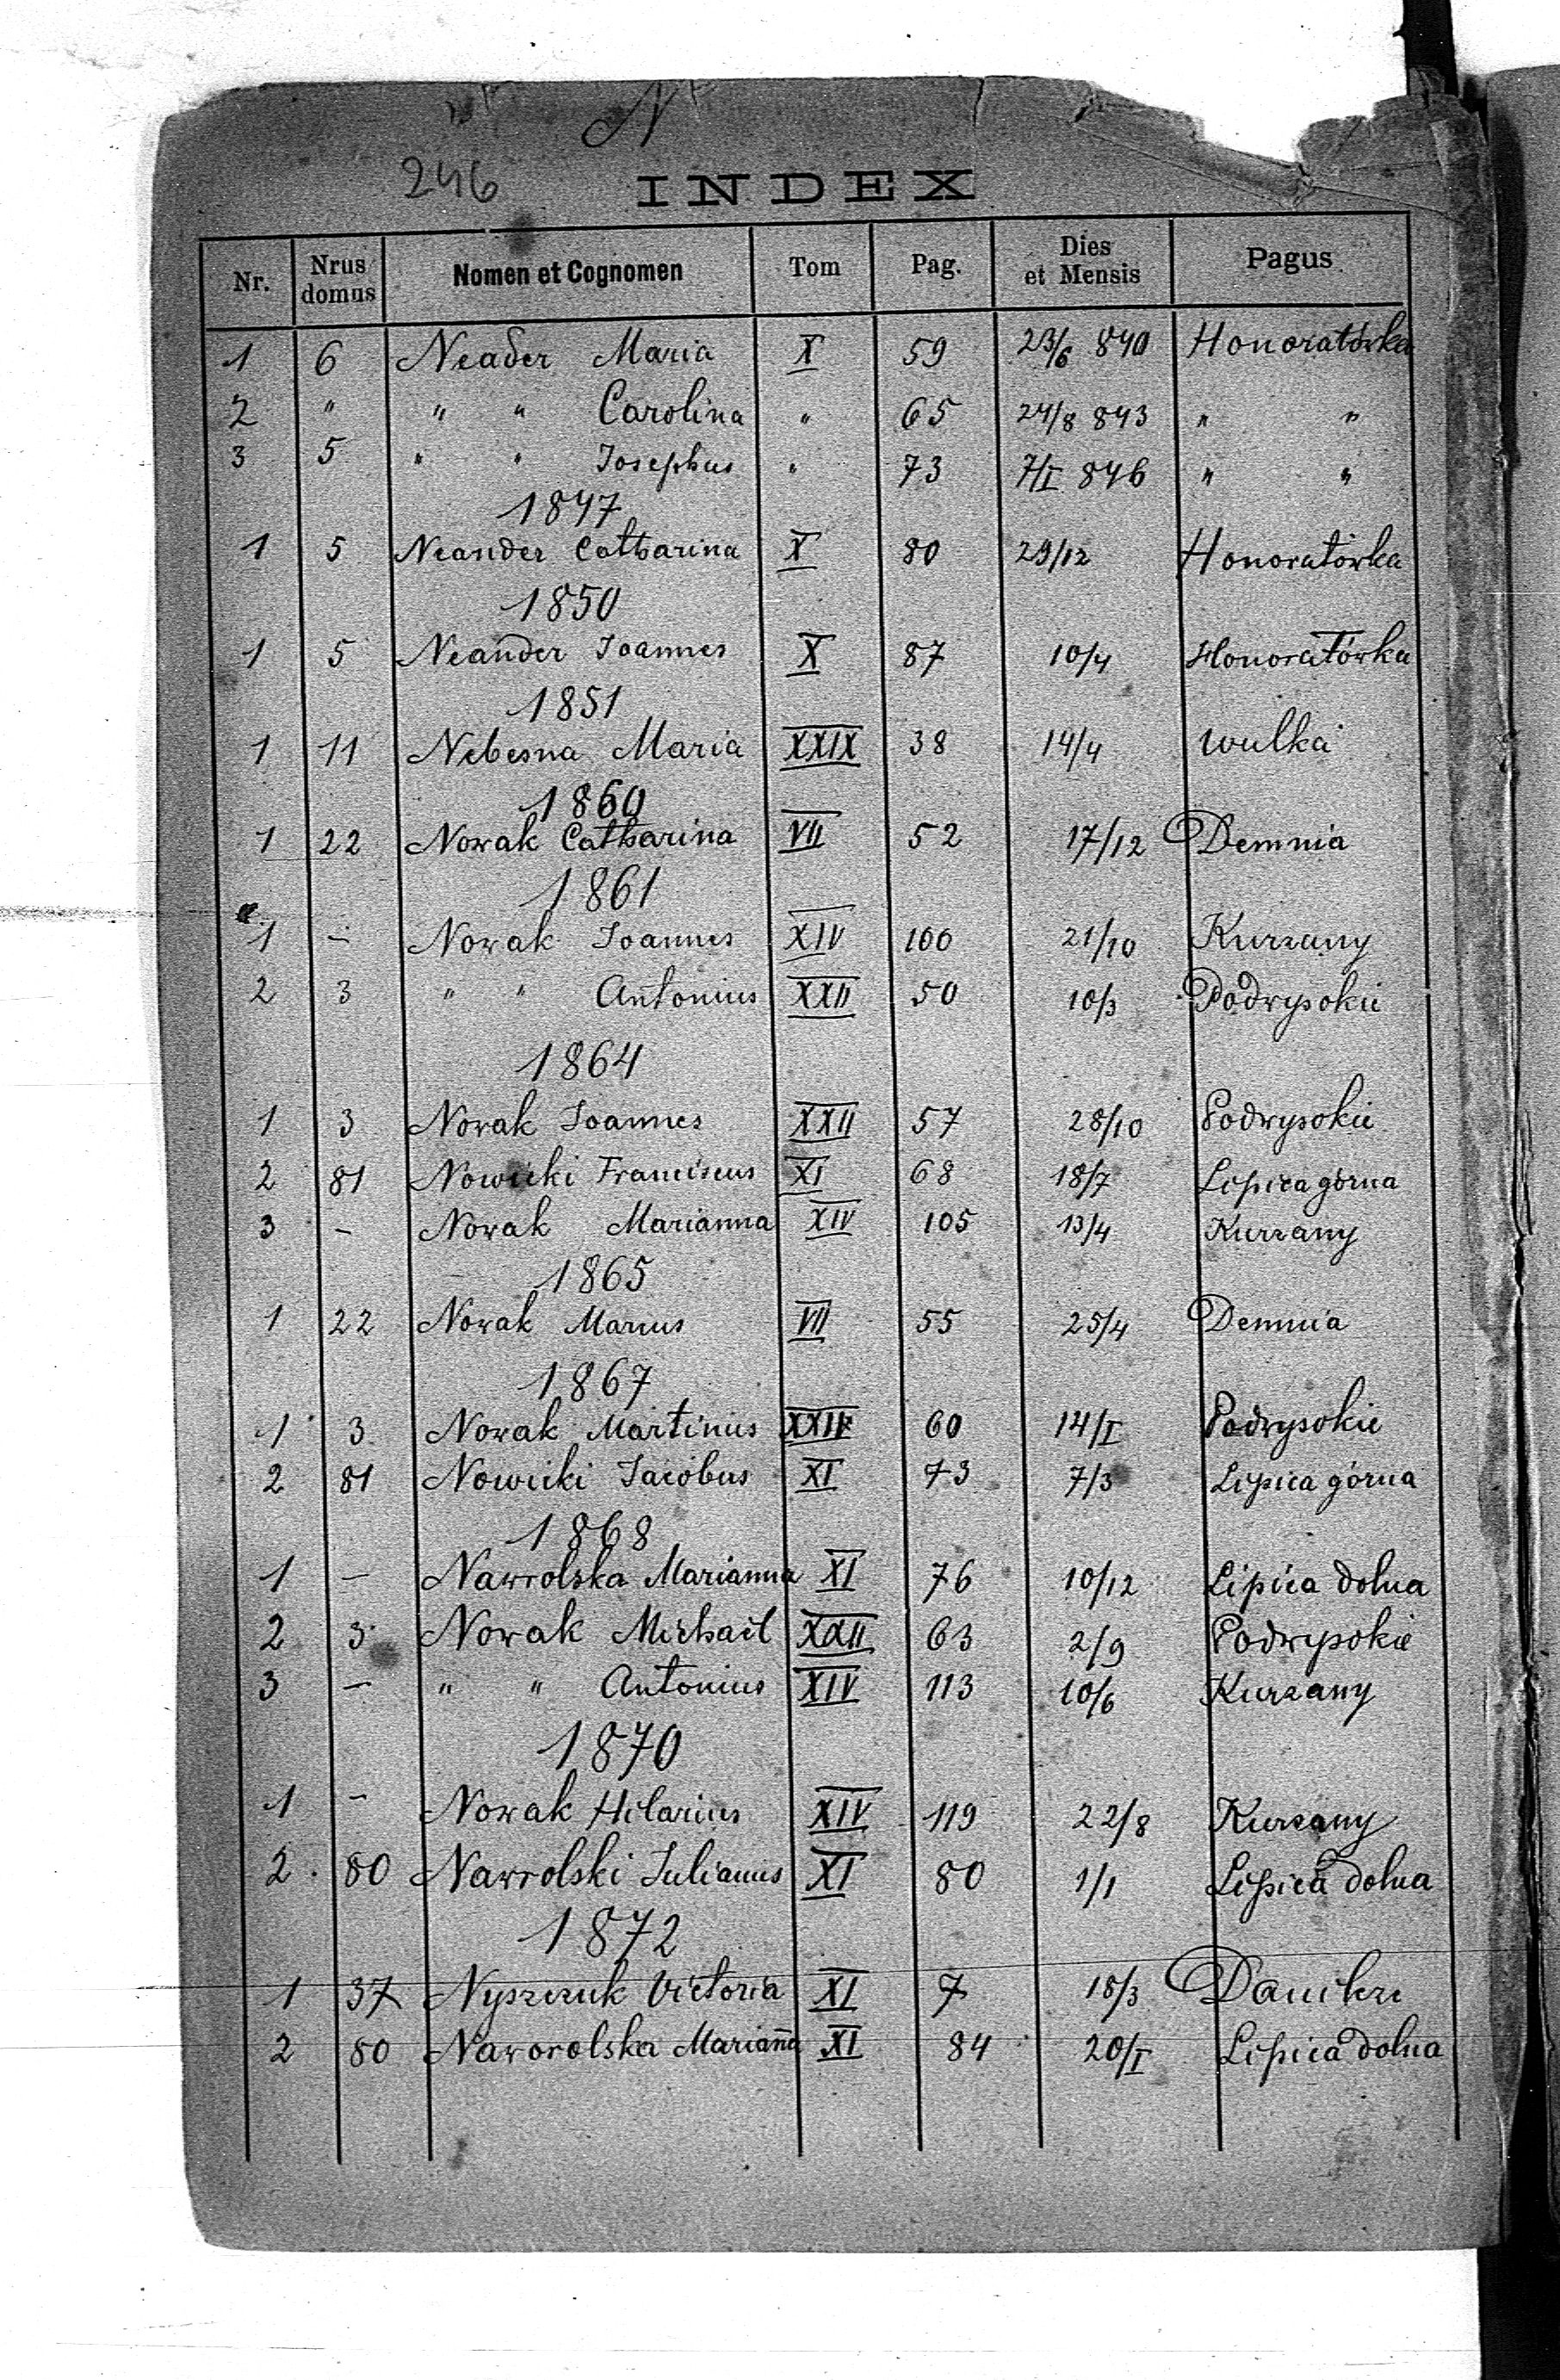 N
246 INDEX
Nr. Nrus domus Nomen et Cognomen Tom Pag. Dies et Mensis Pagus
1 6 Neader Maria X 59 23/6 840 Honoratówka
2 " " " Carolina " 65 24/8 843 " "
3 5 " " Josephus " 73 7/I 846 " "
1847
1 5 Neander Catharina X 80 29/12 Honoratówka
1850
1 5 Neander Joannes X 87 10/4 Honoratówka
1851
1 11 Nebesna Maria XXIX 38 14/4 Wulka
1860
1 22 Nowak Catharina VII 52 17/12 Demnia
1861
1 – Nowak Joannes XIV 100 21/10 Kurzany
2 3 " " Antonius XXII 50 10/3 Podwysokie
1864
1 3 Nowak Joannes XXII 57 28/10 Podwysokie
2 81 Nowicki Franciscus XI 68 18/7 Lipica górna
3 – Nowak Marianna XIV 105 13/4 Kurzany
1865
1 22 Nowak Marcus VII 55 25/4 Demnia
1867
1 3 Nowak Martinus 60 14/I Podwysokie
2 81 Nowicki Jacobus XI 73 7/3 Lipica górna
1868
1 – Nawrolska Marianna XI 76 10/12 Lipica dolna
2 3 Nowak Michael XXII 63 2/9 Podwysokie
3 – " " Antonius XIV 113 10/6 Kurzany
1870
1 – Nowak Hilarius XIV 119 22/8 Kurzany
2 80 Nawrolski Julianus XI 80 1/1 Lipica dolna
1872
1 37 Nyszczuk Victoria XI 7 18/3 Danilcze
2 80 Naworolska Marian̄a XI 84 20/I Lipica dolna